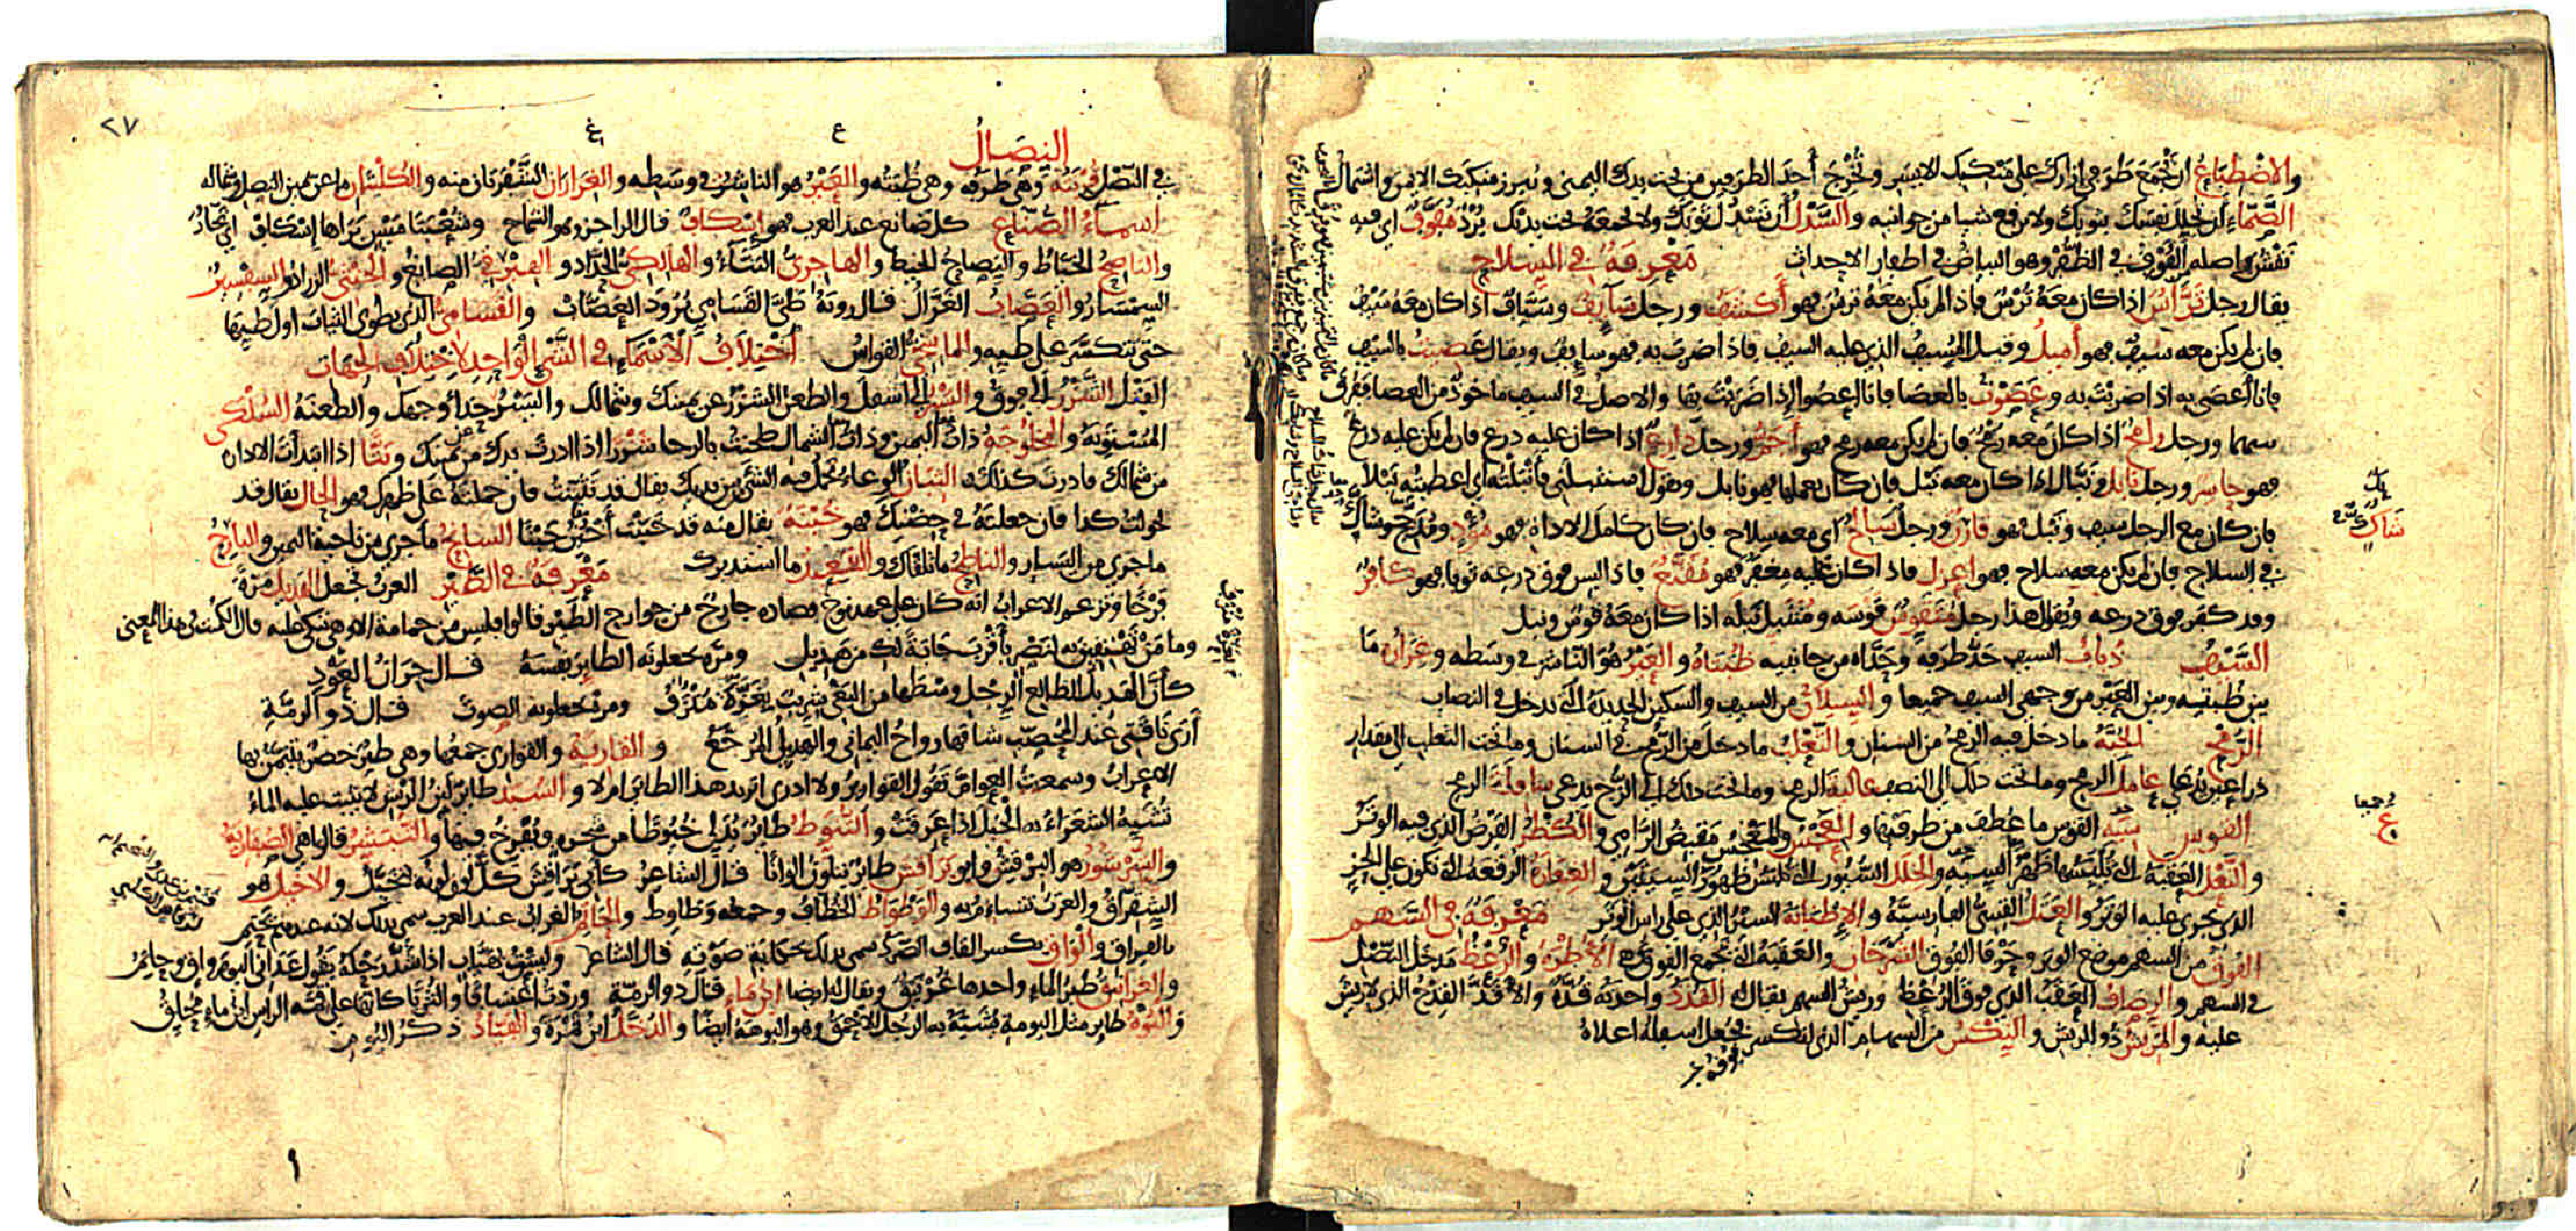 والاضْطِبَاعُ ان تَجْمَعَ طَرَفي ازارك على مَنْكِبك الايسر وتُخْرِجَ أَحَدَ الطرفين من تحت يدك اليمنى وتُبرز منكبك الايمن واشتمالُ
الصَّمّاء أن تجلّل نفسَك بثوبك ولا ترفع شيا من جوانبه والسَّدْلُ أَن تَسْدُل ثَوْبَك ولا تجمعَهُ تحت يدك بُرْدٌ مُفَوَّفٌ اي فيه
نَقْش واصله الفُوْفُ في الظُّفْر وهو البياضُ في اظفار الاحداث مَعْرِفَةٌ في السلاح
يقال رجل تَرَّاسٌ اذا كان مَعَهُ تُرْسٌ فاذا لم يكن مَعَهُ ترسٌ فهو أَكْشَفُ ورجل سَايِفٌ وسَيَّافٌ اذا كان مَعَهُ سَيْفٌ
فان لم يكن معه سَيفٌ فهو أَمْيلُ وقيل السيفُ الذي عليه السيف فاذا ضرب به فهو سايف ويقال عَصِيتُ بالسيف
فانا أَعصَى به اذا ضربْتَ به وعَصَوْتُ بالعصا فانا اعصُوا اذا ضَرَبْتَ بها والاصل في السيف ماخوذ من العصا ففُرق
بينهما ورجل رامِحٌ اذا كان معه رُمْحٌ فان لم يكن معه رمح فهو أَجَمُّ ورجل دارِعٌ اذا كان عليه درع فان لم يكن عليه درع
فهو حاسِر ورجل نابِلٌ ونَبّال اذا كان معه نَبْل فان كان يعملها فهو نابل وتقول استنبلَني فأَنبَلْتُه اي اعطيتُه نَبْلا
فان كان مع الرجل سيف ونَبْل فهو قارِنٌ ورجل سَالِحٌ اي معه سِلاح فان كان كامل الاداة فهو مُؤْدٍ ومُدَجَّجٌ وشاكّ
في السلاح فان لم يكن معه سلاح فهو اعزل فاذا كان عليه مِغْفَرٌ فهو مُقَنَّعٌ فاذا لبس فوق درعه ثوبا فهو كافِرٌ
وقد كفر فوق درعه وتقول هذا رجل مُتَقَوِّسٌ قَوْسَه ومُتنَبِّل نَبْله اذا كان مَعَهُ قوسٌ ونبل
السَّيْفُ ذُبابُ السيف حَدُّ طرَفِه وحَدَّاه من جانبيه ظُبَتاهُ والعَيْرُ هُوَ النّاشزُ في وسَطه وغِرَارهُ مَا
بين ظُبتيه وبين العَيْر من وجهَي السيف جميعا والسِيلانُ من السيف والسكين الحديدةُ التي تدخل في النصاب
الرُّمْح الجُبَّةُ ما دخل فيه الرمحُ من السنان والثَعْلَبُ ما دخل من الرُّمح في السنان وما تحت الثعلب الى مقدار
ذراعين يُدعَى عامِلَ الرمح وما تحت ذلك الى النصف عاليةَ الرمح وما تحت ذلك الى الزُّجّ يدعى سافِلَةَ الرمح
القوس سِيَةُ القوس ما عُطِفَ من طرفَيها والعَجْسُ والمَعْجِسُ مَقبِضُ الرّامي والكُظْرُ الفَرْضُ الذي فيه الوتَرُ
والنَّعْلُ العَقَبَةُ التي تُلْبَسُها ظَهْرُ السِيَه والخِلَلُ السُّيُور التي تُلبَسُ ظُهورَ السِيَتَين والغِفارَة الرقعةُ التي تكون على الحزّ
الذي يجري عليه الوتَرُ والعَتَلُ القِسيُّ الفارسيَّةُ والإِطنابَة السَيْرُ الذي على راس الوتر مَعْرِفَةٌ في السَهم
الفُوقُ من السهم موضع الوتر وحَرْفا الفُوق الشَّرْخان والعَقَبَةُ التي تجمع الفُوقَ هي الأُطْرَةُ والرُّعْظُ مَدخَل النَّصْل
في السهم والرِصافُ العَقَبُ الذي فوق الرُعظ وريشُ السهم يقال له القُذَذُ واحدته قُذَّةٌ والاقَذُّ القِدْحُ الذي لا ريشَ
عليه والمَرِيشُ ذو الريش والنِكْسُ من السهام الذي انكَسر فجُعل اسفله اعلاهُ
النِصَالُ
في النّصل قُرْنَته وهي طَرفه وهي ظُبَته والعَيْرُ هو الناشزُ في وسَطه والغِرَارانِ الشَّفْرتان منه والكُلْيتانِ ما عن يمين النصل وشماله
اسماءُ الصُّنّاع كل صانع عند العرب فهو إسْكافٌ قال الراجز وهو الشماخ وشُعْبَتا مَيْسٍ بَرَاها إسْكاف اي نجّارٌ
والناصِحُ الخيّاطُ والنِصاحُ الخيط والهاجِريُّ البَنّاءُ والهالِكيُّ الحدّاد والهِبْرِقيُّ الصايغُ والجُنْثيُّ الزرّاد والسِفْسِيرُ
السِمسَار والعَصّابُ الغَزّالُ قال رُوبَةُ طَيَّ القَسَاميِّ بُرُودَ العَصّاب والقَسَاميُّ الذي يطوي الثياب اول طَيِّها
حتى تتكسَّر على طيه والماسِخيُّ القواسُ أختِلافُ الأسْمَاءِ في الشَّيِ الوَاحِدِ لاخْتِلافِ الجهات
الفَتْل الشَّزْرُ الى فوق واليَسْرُ الى اسفل والطعن الشزرُ عن يمينك وشمالك واليَسْرُ حِذاء وجهك والطعنَةُ السُلْكَى
المُسْتويَةُ والمَخلُوجَةُ ذات اليمين وذات الشمال طحنتُ بالرحا شزرا اذا ادرتَ يدك عن يمينك وبَتّا اذا ابتدأتَ الادارة
من شمالك فادرتَ كذلك الثِبانُ الوعاءُ تحمل فيه الشيَ بين يديك يقال قد تَثَبّنتُ فان حملتَهُ على ظهرك فهو الحال يقال قد
تحوّلتُ كذا فان جعلتَهُ في حِضْنك فهو خُبْنَةٌ يقال منه قد خَبَنْتُ أَخْبِنُ خَبْنًا السانِحُ ما جرى من ناحية اليمين والبارِحُ
ما جرى من اليسار والناطِحُ ما تلقّاك والقَعيدُ ما استدبرك مَعْرِفَةٌ في الطَّيْر العربُ تجعل الهَديلَ مَرّةً
فَرْخًا وتزعم الاعراب انه كان على عهد نوح فصاده جارح من جوارح الطَيْر قالوا فليس من حمامة الا وهي تبكي عليه قال الكميت في هذا المعنى
وما مَنْ تَهتفِينَ به لنَصْرٍ بأَقْرَبَ جَابَةً لك من هَديلِ ومرّة يجعلونه الطاير نفسَهُ قال جِرَانُ العَوْد
كأنَّ الهديلَ الظالعَ الرِجْل وسْطَها من البَغْي شِرّيبٌ بغَزَّةَ مُنْزَفُ ومرّة يجعلونه الصوتَ قال ذو الرمَّةِ
أَرَى نَاقَتي عند المُحَصَّب شاقَها رواحُ اليَماني والهَديلُ المُرَجَّعُ والقارِيَةُ والقواري جَمْعُها وهي طيْرٌ خُضْرٌ يتيمّن بها
الاعراب وسمعت العوامّ تقول القوارير ولا ادري اتريد هذا الطائر ام لا والسُبَد طائر لَيّنُ الريش لا يثبت عليه الماءُ
تُشَبِّهُ الشعراءُ به الخيلَ اذا عَرِقَتْ والتُنَوِّطُ طائِرٌ يُدَلّي خُيُوطًا من شجره ويُفرِخُ فيها والتُبَشِّرُ قالوا هي الصُفارِيّةُ
والشُرْشُور هو البِرْقِشُ وابو بَراقِشَ طائر يتلوّن الوانًا قال الشاعرُ كأبي بَرَاقِشَ كُلَّ لَوْنٍ لونُه يَتَخَيَّل والاخيَل هو
الشِقِرّاقُ والعربُ تتشاءمُ به والوَطْوَاطُ الخُطّافُ وجمعه وَطَاوِط والحاتِمُ الغراب عند العرب سمي بذلك لانه عندهم يَحْتِم
بالفراق والواقِ بكسر القاف الصُرَدُ سمي بذلك حكايَةِ صَوْتِه قال الشاعر ولَسْتُ بهَيّابٍ اذا شَدَّ رَحْلَهُ يقول عَدَاني اليومَ واقٍ وحاتِمُ
والغَرانِيقُ طَيْرُ الماءِ واحدها غُرْنَيق ويقال له ايضا ابن ماءٍ قال ذو الرمّة وردتُ اعتِسافًا والثُرَيّا كانّها على قمّه الراس ابنُ ماءٍ مُحَلِّقُ
والبُوهُ طاير مثل البومة يُشبَّهُ به الرجل الاحمَقُ وهو البوهَةُ أيضًا والدُخَّلُ ابن تَمْرَةَ والفَيّادُ ذكَرُ البُوم